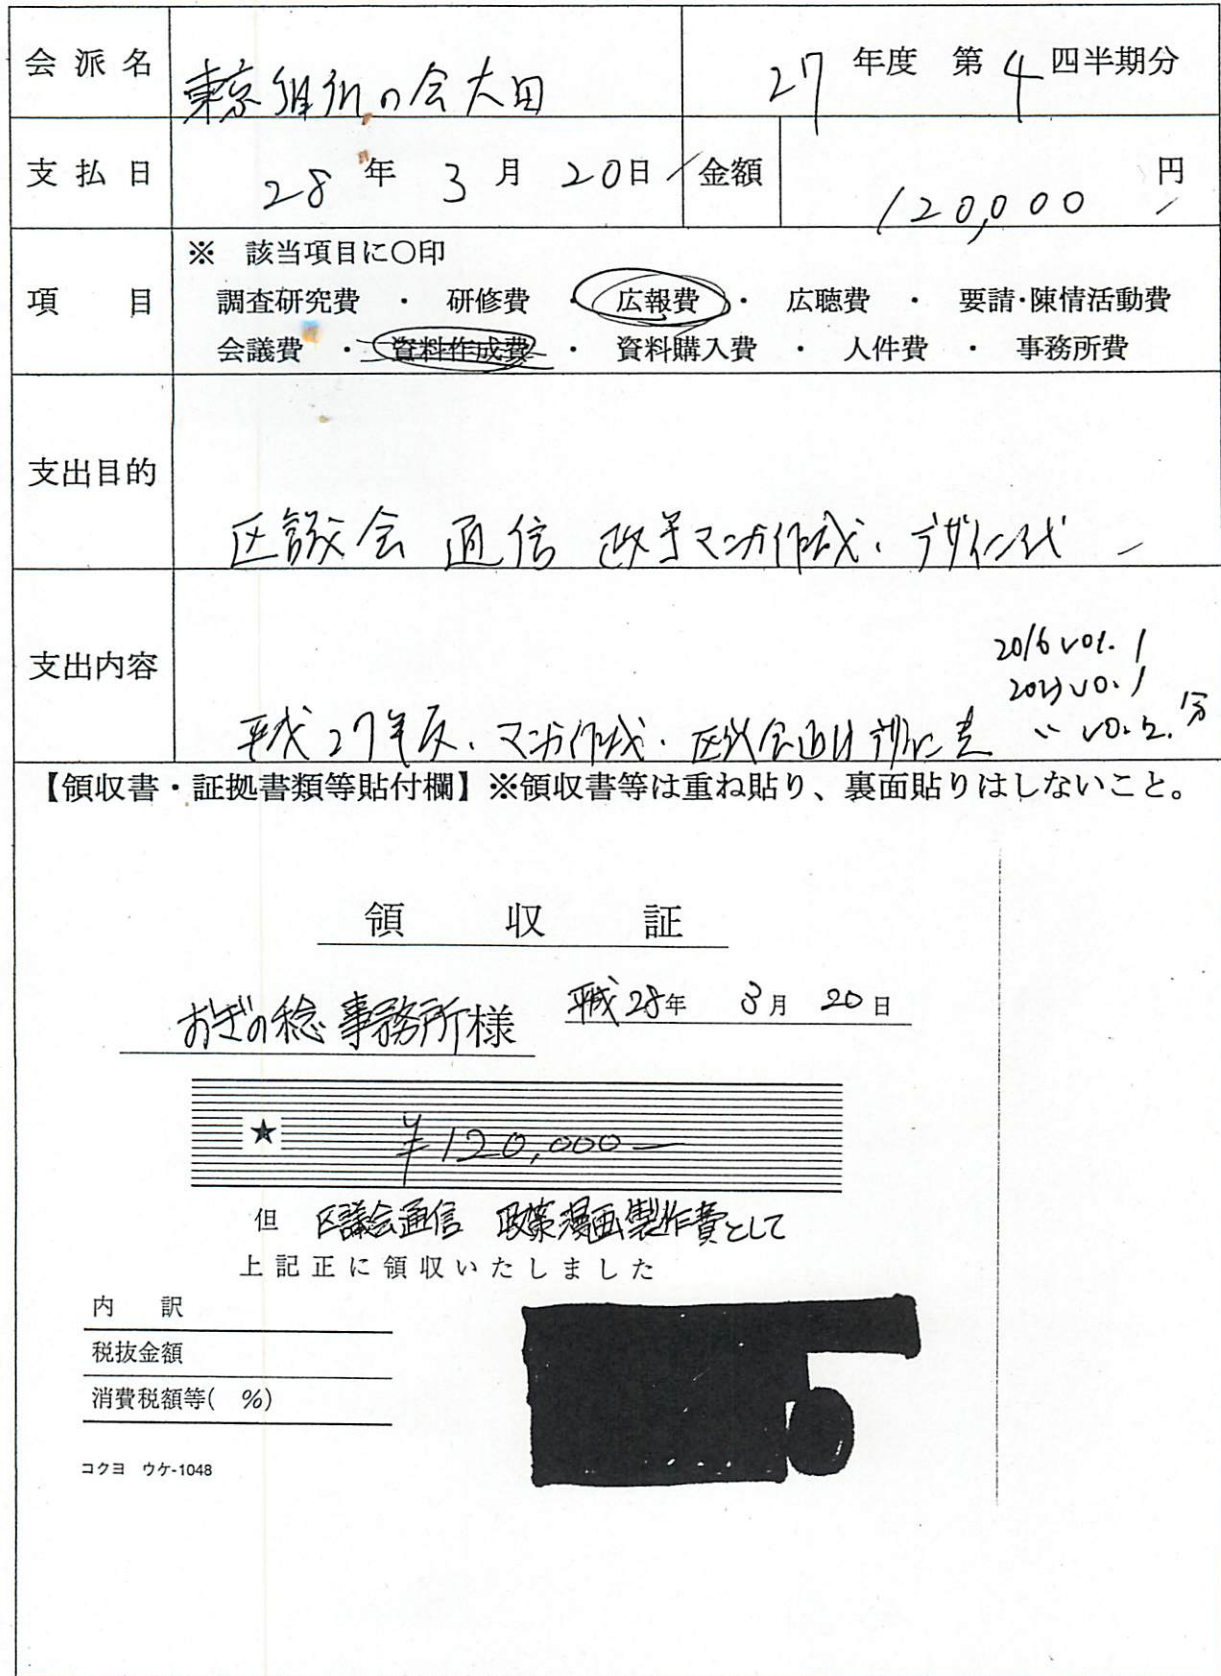 会派名 東京維新の会大田 27年度 第4四半期分
支払日 28年 3月 20日 金額 120,000円
項目 ※ 該当項目に〇印
調査研究費 ・ 研修費 ・ 広報費 ・ 広聴費 ・ 要請・陳情活動費
会議費 ・ 資料作成費 ・ 資料購入費 ・ 人件費 ・ 事務所費
支出目的
区議会通信 政策マンガ作成、デザイン代
支出内容
2016 vol. 1
vo. 1
〃 vo. 2. 分
平成27年度、マンガ作成・区議会通信
【領収書・証拠書類等貼付欄】※領収書等は重ね貼り、裏面貼りはしないこと。
領収証
おぎの稔事務所様 平成28年 3月 20日
★ ¥120,000―
但 区議会通信 政策漫画製作費として
上記正に領収いたしました
内訳
税抜金額
消費税額等( %)
コクヨ ウケ-1048